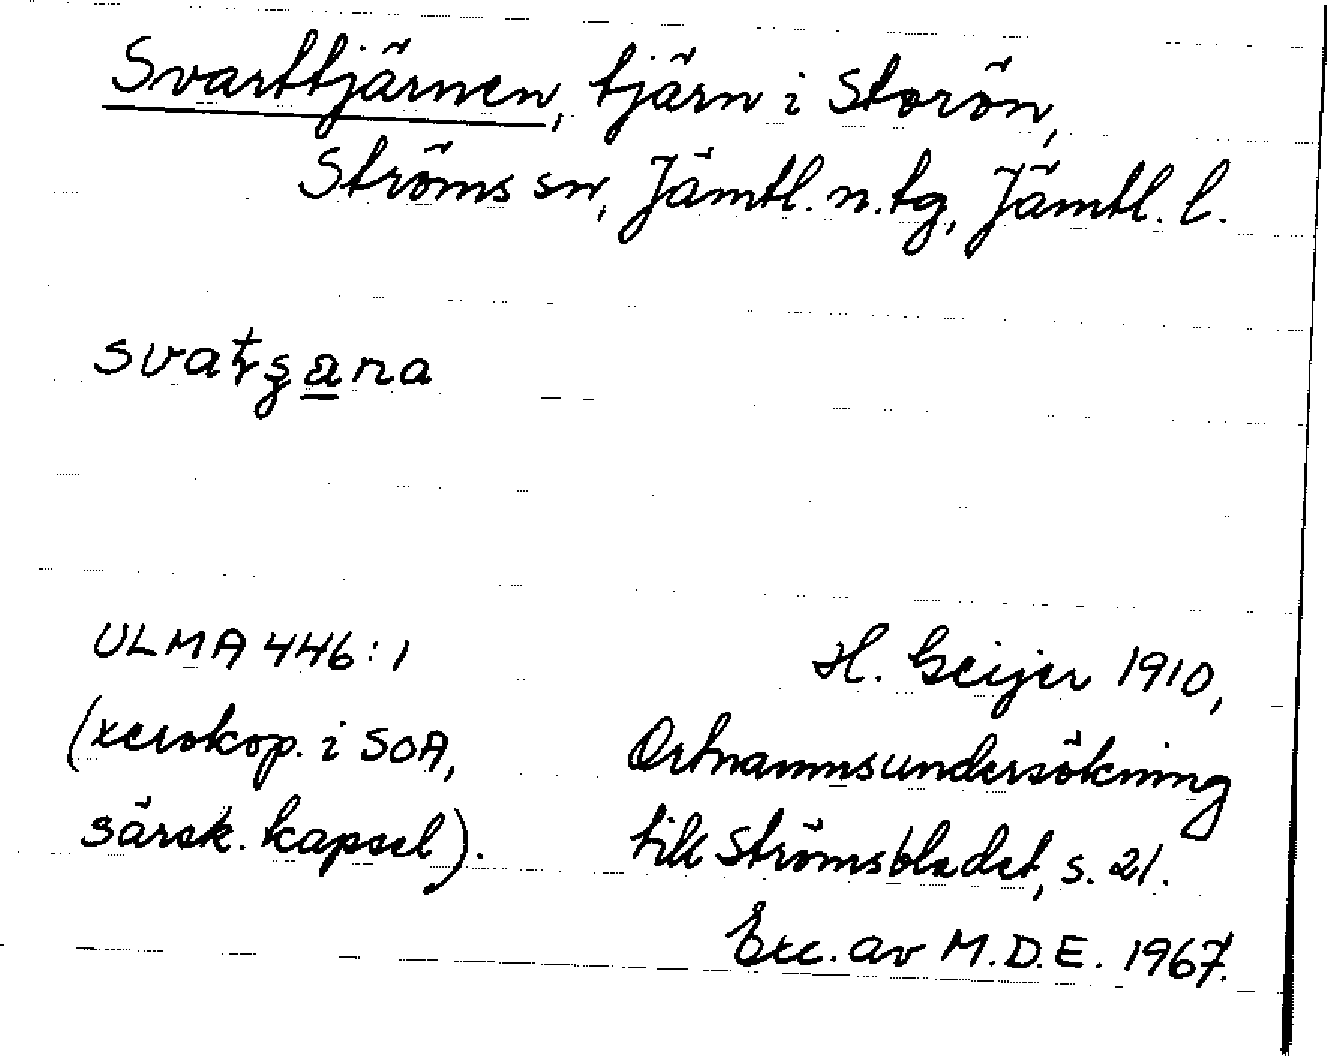 Svarttjärnen, tjärn i Storön,
Ströms sn, Jämtl. n. tg, Jämtl. l.
svatʂana
ULMA 446:1
(xerokop. i SOA,
särsk. kapsel).
H. Geijer 1910,
Ortnamnsundersökning
till Strömsbladet, s. 21.
Exc. av M.D.E. 1967.